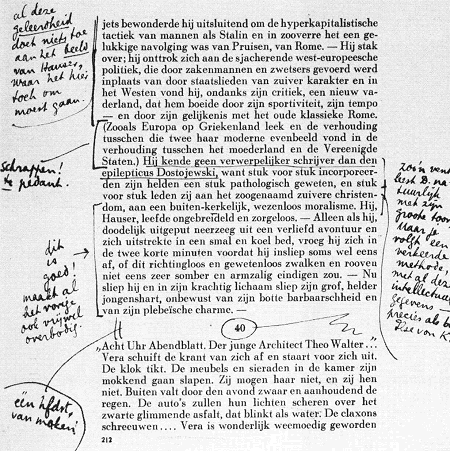 al deze
geleerdheid
doet niets toe
aan het beeld
van Hauser,
waar het hier
toch om
moest gaan.
jets bewonderde hij uitsluitend om de hyperkapitalistische
tactiek van mannen als Stalin en in zooverre het een ge-
lukkige navolging was van Pruisen, van Rome. — Hij stak
over; hij onttrok zich aan de sjacherende west-europeesche
politiek, die door zakenmannen en zwetsers gevoerd werd
inplaats van door staatslieden van zuiver karakter en in
het Westen vond hij, ondanks zijn critiek, een nieuw va-
derland, dat hem boeide door zijn sportiviteit, zijn tempo
— en door zijn gelijkenis met het oude klassieke Rome.
(Zooals Europa op Griekenland leek en de verhouding
tusschen die twee haar moderne evenbeeld vond in de
verhouding tusschen het moederland en de Vereenigde
Staten.) Hij kende geen verwerpelijker schrijver dan den
epilepticus Dostojewski, want stuk voor stuk incorporeer-
den zijn helden een stuk pathologisch geweten, en stuk
voor stuk leden zij aan het zoogenaamd zuivere christen-
dom, aan een buiten-kerkelijk, wezenloos moralisme. Hij,
Hauser, leefde ongebreideld en zorgeloos. — Alleen als hij,
doodelijk uitgeput neerzeeg uit een verliefd avontuur en
zich uitstrekte in een smal en koel bed, vroeg hij zich in
de twee korte minuten voordat hij insliep soms wel eens
af, of dit richtingloos en gewetenloos zwalken en rooven
niet eens zeer somber en armzalig eindigen zou. — Nu
sliep hij en in zijn krachtig lichaam sliep zijn grof, helder
jongenshart, onbewust van zijn botte barbaarschheid en
van zijn plebeïsche charme. —
schrappen!
te pedant.
dit
is
goed!
maakt al
het vorige
ook vrijwel
overbodig.
zoo'n vent
leest D. na-
tuurlijk
met zijn
groote toon.
Maar je
volgt een
verkeerde
methode,
met al deze
intellectueele
gegevens —
precies als bij
Lise von K.
40
„Acht Uhr Abendblatt. Der junge Architect Theo Walter..."
Vera schuift de krant van zich af en staart voor zich uit.
De klok tikt. De meubels en sieraden in de kamer zijn
mokkend gaan slapen. Zij mogen haar niet, en zij hen
niet. Buiten valt door den avond zwaar en aanhoudend de
regen. De auto's zullen hun lichten scheren over het
zwarte glimmende asfalt, dat blinkt als water. De claxons
schreeuwen.... Vera is wonderlijk weemoedig geworden
één hfdst.
van maken!
212